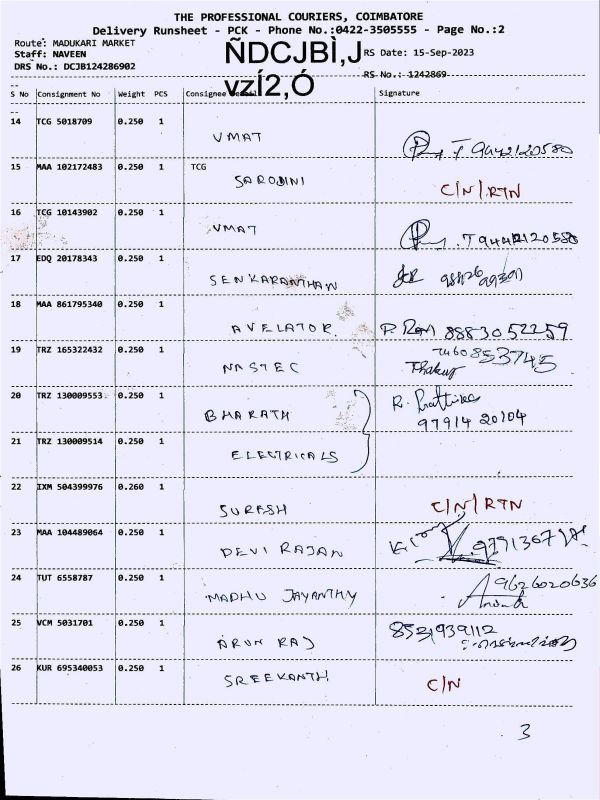 THE PROFESSIONAL COURIERS, COIMBATORE
Delivery Runsheet - PCK - Phone No.:0422-3505555 - Page No.:2
Route: MADUKARI MARKET
Staff: NAVEEN
DRS No.: DCJB124286902
ÑDCJBÌ,J
vzÍ2,Ó
RS Date: 15-Sep-2023
RS No.: 1242869
S No Consignment No Weight PCS Consignee Signature
14 TCG 5018709 0.250 1 VMAT 9442120580
15 MAA 102172483 0.250 1 TCG SAROJINI C/N/RTN
16 TCG 10143902 0.250 1 VMAT
17 EDQ 20178343 0.250 1 SENKARANTHAN
18 MAA 861795340 0.250 1 AVELATOR. P. Ram 8883052259
19 TRZ 165322432 0.250 1 NASTEC 7460853745
Thakur
20 TRZ 130009553 0.250 1 BHARATH R.
97914 20104
21 TRZ 130009514 0.250 1 ELECTRICALS
22 IXM 504399976 0.260 1 SURESH C/N/RTN
23 MAA 104489064 0.250 1 DEVI RAJAN
24 TUT 6558787 0.250 1 MADHU JAYANTHY 9626020636
25 VCM 5031701 0.250 1 ARUN RAJ 8521939112
26 KUR 695340053 0.250 1 SREEKANTH C/N
3